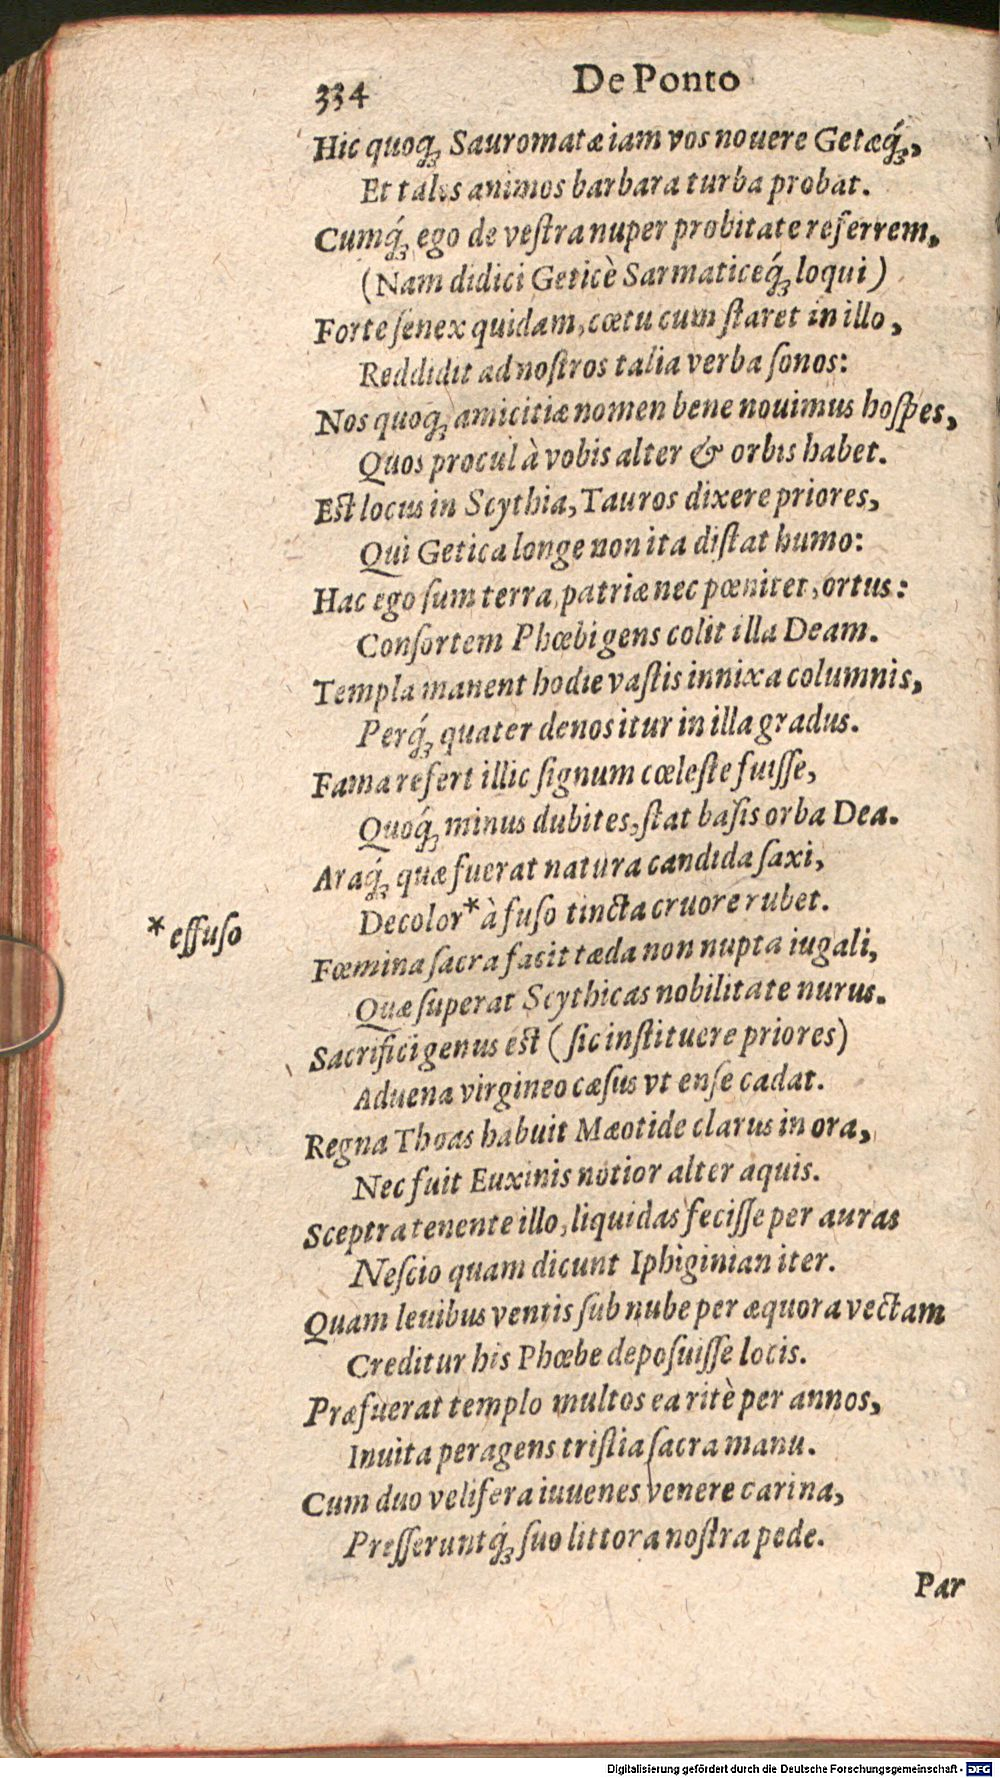 334 De Ponto
Hic quoq́; Sauromatæ iam vos nouere Getæq́;,
Et tales animos barbara turba probat.
Cumq́; ego de veſtra nuper probitate referrem,
(Nam didici Geticè Sarmaticeq́; loqui)
Forte ſenex quidam, cœtu cum ſtaret in illo,
Reddidit ad noſtros talia verba ſonos:
Nos quoq; amicitiæ nomen bene nouimus hoſpes,
Quos procul à vobis alter & orbis habet.
Eſt locus in Scythia, Tauros dixere priores,
Qui Getica longe non ita diſtat humo:
Hac ego ſum terra, patriæ nec pœnitet, ortus:
Conſortem Phœbi gens colit illa Deam.
Templa manent hodie vaſtis innixa columnis,
Perq́; quater denos itur in illa gradus.
Fama refert illic ſignum cœleſte fuiſſe,
Quoq́; minus dubites, ſtat baſis orba Dea.
Araq́; quæ fuerat natura candida ſaxi,
Decolor* à fuſo tincta cruore rubet.
*effuſo
Fœmina ſacra facit tæda non nupta iugali,
Quæ ſuperat Scythicas nobilitate nurus.
Sacrifici genus eſt (ſic inſtituere priores)
Aduena virgineo cæſus vt enſe cadat.
Regna Thoas habuit Mæotide clarus in ora,
Nec fuit Euxinis notior alter aquis.
Sceptra tenente illo, liquidas feciſſe per auras
Neſcio quam dicunt Iphiginian iter.
Quam leuibus ventis ſub nube per æquora vectam
Creditur his Phœbe depoſuiſſe locis.
Præfuerat templo multos ea ritè per annos,
Inuita peragens triſtia ſacra manu.
Cum duo velifera iuuenes venere carina,
Preſſeruntq́; ſuo littora noſtra pede.
Par
Digitalisierung gefördert durch die Deutsche Forschungsgemeinschaft - DFG